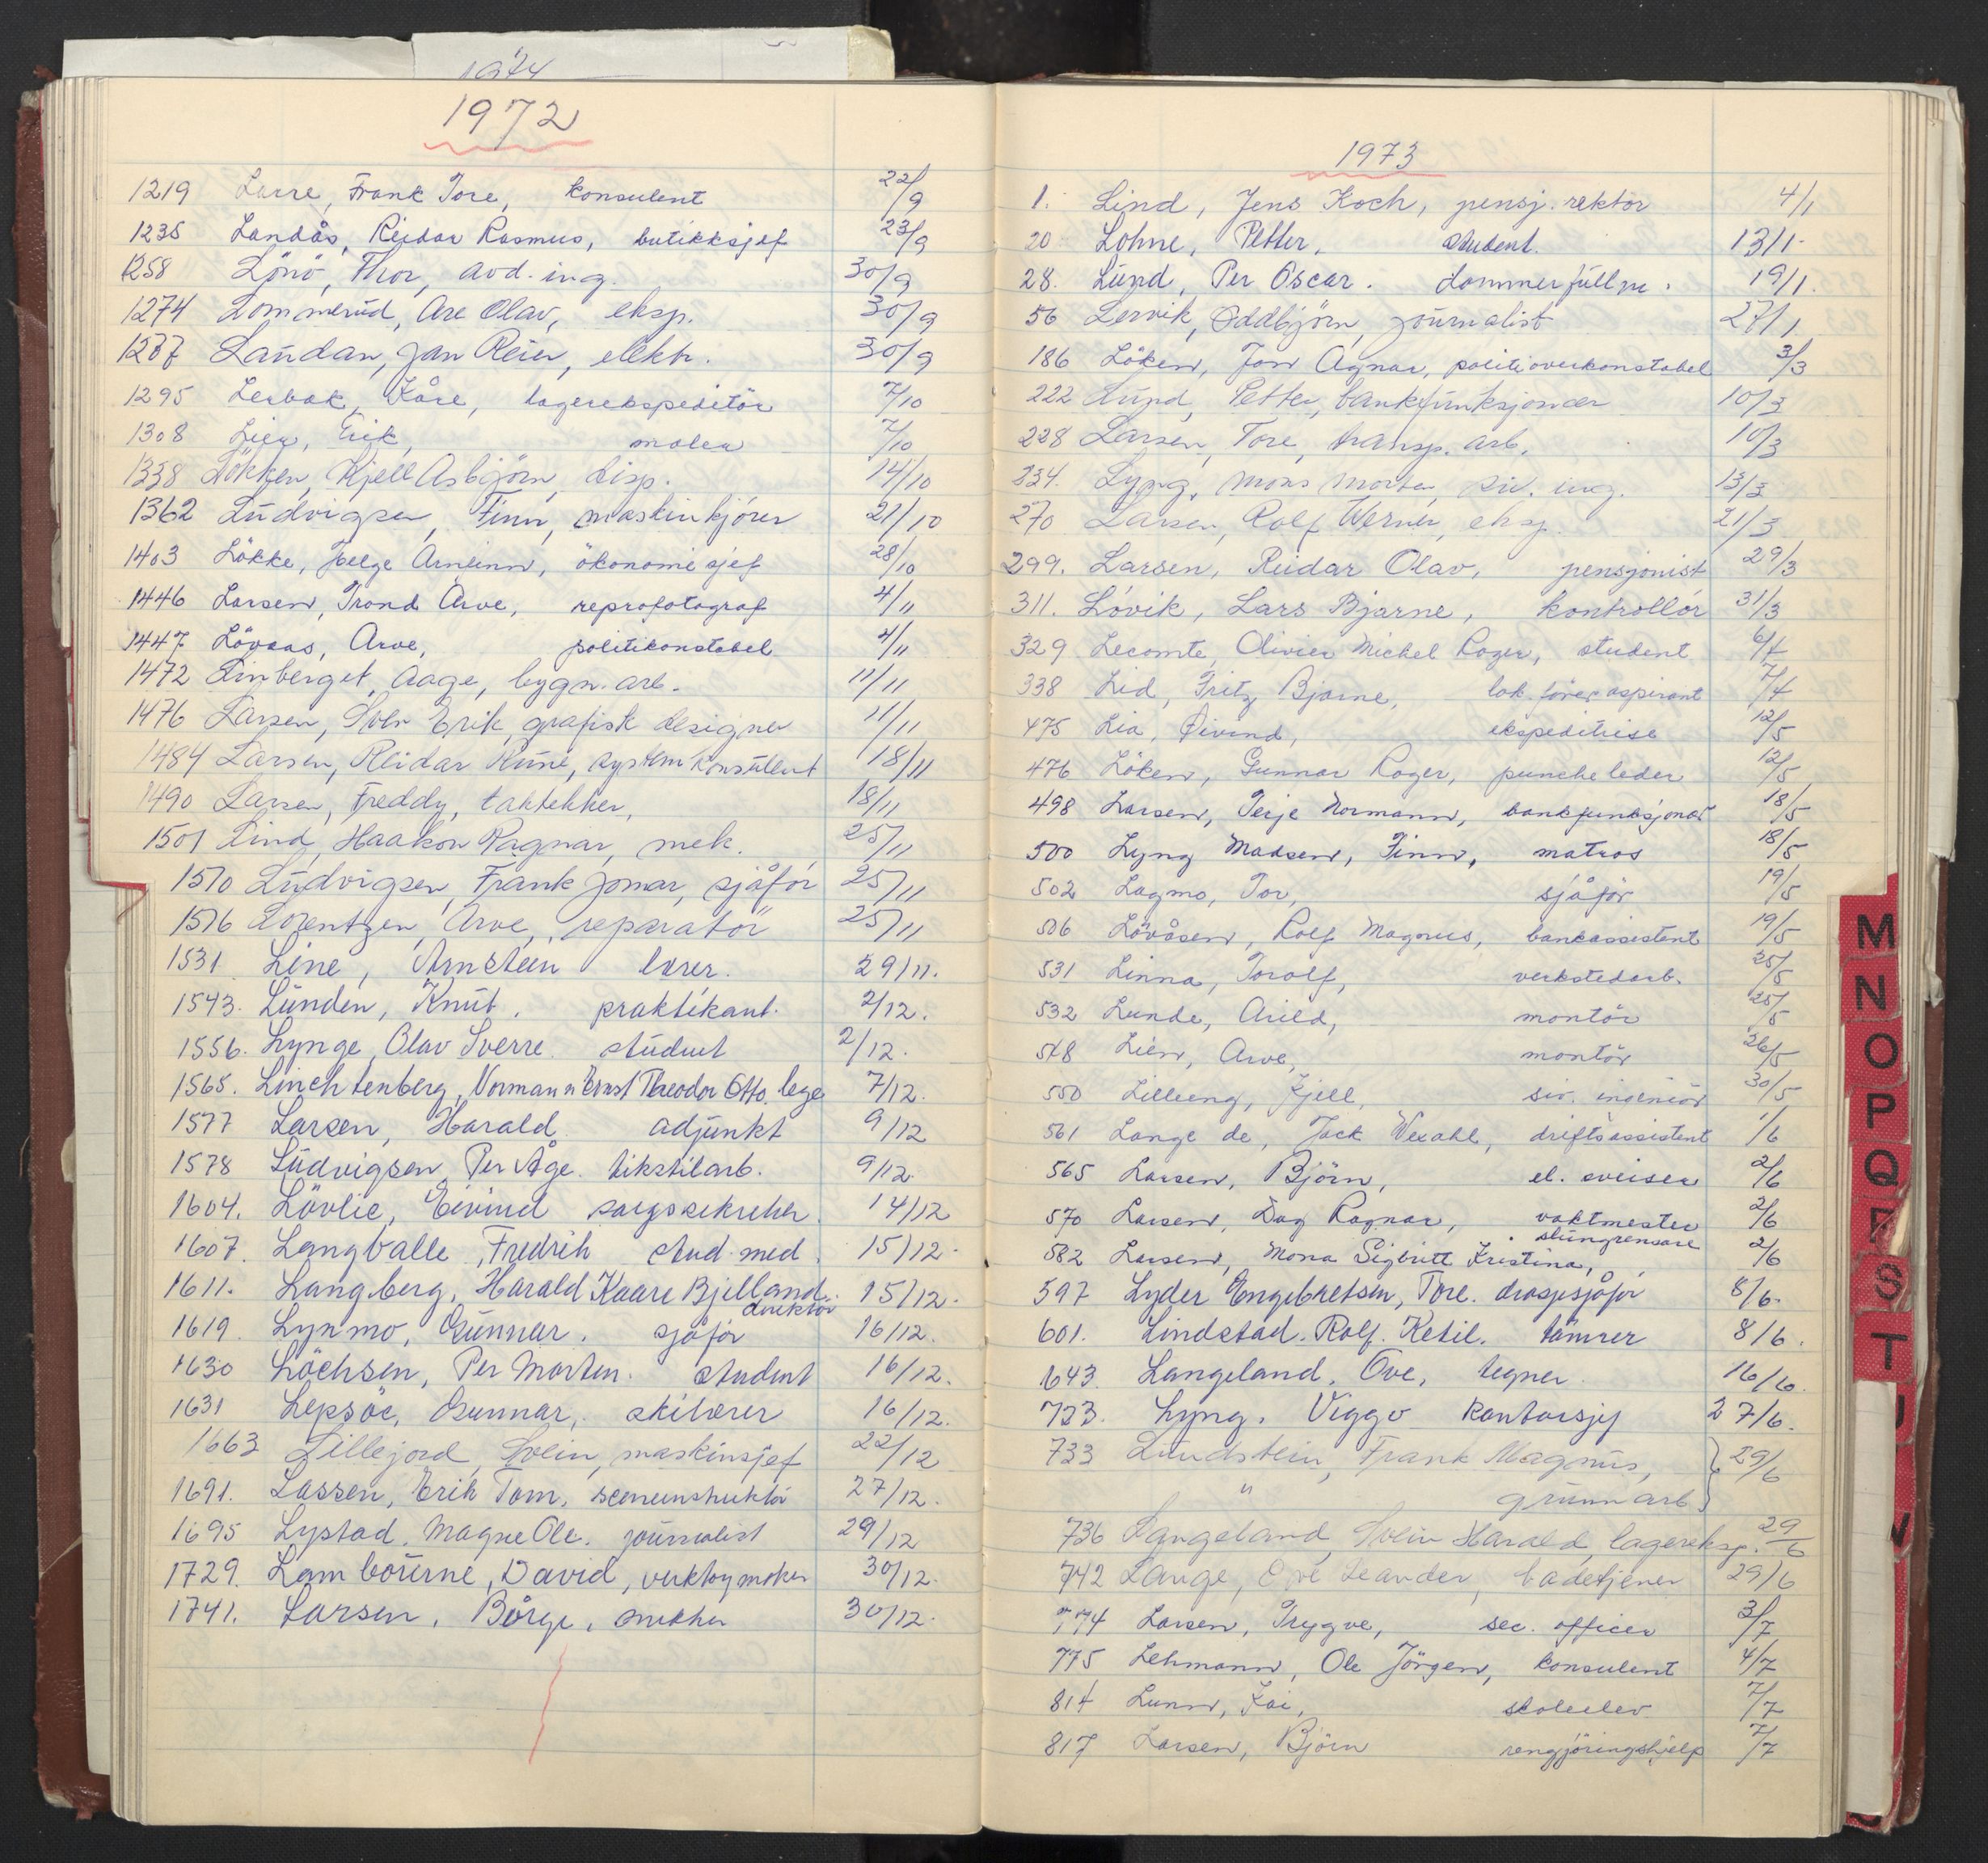 1974
1972
1219 Lerre, Frank Tore, konsulent 22/9
1235 Landås, Reidar Rasmus, butikksjef 23/9
1258 Lönö, Thor, avd. ing. 30/9
1274 Lommerud, Are Olav, eksp. 30/9
1287 Laudan, Jan Reier, elektr. 30/9
1295 Lerbak, Kåre, lagerekspeditör 7/10
1308 Lien, Erik, maler 7/10
1338 Løkken, Kjell Asbjörn, disp. 14/10
1362 Ludvigsen, Finn, maskinkjörer 21/10
1403 Lökke, Helge Arnfinn, ökonomisjef 28/10
1446 Larsen, Trond Arve, reprofotograf 4/11
1447 Lövaas, Arve, politikonstabel 4/11
1472 Linberget, Aage, bygn. arb. 11/11
1476 Larsen, Svein Erik, grafisk designer 11/11
1484 Larsen, Reidar Rune, systemkonsulent 18/11
1490 Larsen, Freddy, taktekker, 18/11
1501 Lind, Haakon Ragnar, mek. 25/11
1510 Ludvigsen, Frank Jomar, sjåför 25/11
1516 Lorentzen, Arve, reparatör 25/11
1531 Line, Arnstein lærer. 29/11.
1543. Lunden, Knut. praktikant. 2/12.
1556. Lynge, Olav Sverre. student 2/12.
1565. Linchtenberg, Normann Ernst Theodor Otto. lege 7/12.
1577 Larsen, Harald adjunkt 9/12
1578 Ludvigsen, Per Åge. tekstilarb. 9/12.
1604. Lövlie, Eivind salgssekretær. 14/12
1607. Langballe, Fredrik stud. med. 15/12.
1611. Langberg, Harald Kaare Bjelland. 15/12.
direktör
1619. Lynmo, Gunnar. sjåför 16/12.
1630 Löchsen, Per Morten. student 16/12.
1631 Lepsöe, Gunnar. skilærer 16/12.
1663 Lillejord, Svein, maskinsjef 22/12
1691. Lassen, Erik Tom, sceneinstruktör 27/12.
1695 Lystad, Magne Ole. journalist 29/12
1729. Lambourne, David, verktøymaker 30/12.
1741. Larsen, Börge, snekker 30/12.
1973
1. Lind, Jens Koch, pensj. rektor 4/1
20 Lohne, Petter, student. 13/1.
28. Lund, Per Oscar. dommerfullm. 19/1.
56 Lervik, Oddbjörn, journalist 27/1
186 Löken, Jon Agnar, politioverkonstabel 3/3
222 Lund, Petter, bankfunksjonær 10/3
228 Larsen, Tore, transp. arb. 10/3
234. Lyng, Mons Morten, siv. ing. 13/3
270 Larsen, Rolf Werner, eksp. 21/3
299. Larsen, Reidar Olav, pensjonist 29/3
311. Lövik, Lars Bjarne, kontrollör 31/3
329 Lecomte, Olivier Michel Roger, student 6/4
338 Lid, Fritz Bjarne, lok. förer aspirant 7/4
475 Lia, Øivind, ekspeditrise 12/5
476 Löken, Gunnar Roger, puncheleder 12/5
498 Larsen, Terje Normann, bankfunksjonær 18/5
500 Lyng Madsen, Finn, matros 18/5
502 Lagmo, Tor, sjåför 19/5
506 Lövåsen, Rolf Magnus, bankassistent 19/5
531 Linna, Torolf, verkstedarb. 25/5
532 Lunde, Arild, montör 25/5
548 Lien, Arve, montör 26/5
550 Lilleeng, Kjell, siv. ingeniör 30/5
561 Lange de, Jack Wexahl, driftsassistent 1/6
565 Larsen, Björn, el. sveiser 2/6
570 Larsen, Dag Ragnar, vaktmester 2/6
582 Larsen, Mona Sigbritt Kristina, slungrensare 2/6
597 Lyder Engebretsen, Tore. drosjesjåför 8/6.
601. Lindstad. Rolf. Ketil. tömrer 8/6.
643. Langeland, Ove, tegner 16/6.
723. Lyng, Viggo kontorsjef 27/6.
733 Lundstein, Frank Magnus, } 29/6
" grunnarb.
736 Langeland, Svein Harald, lagereksp. 29/6
742 Lange, Ove Leander, badetjener 29/6
774 Larsen, Trygve, sec. officer 3/7
775 Lehmann, Ole Jörgen, konsulent 4/7
814 Lunn, Kai, skoleelev 7/7
817 Larsen, Björn rengjöringshjelp 7/7
M
N
O
P
Q
R
S
T
U
V